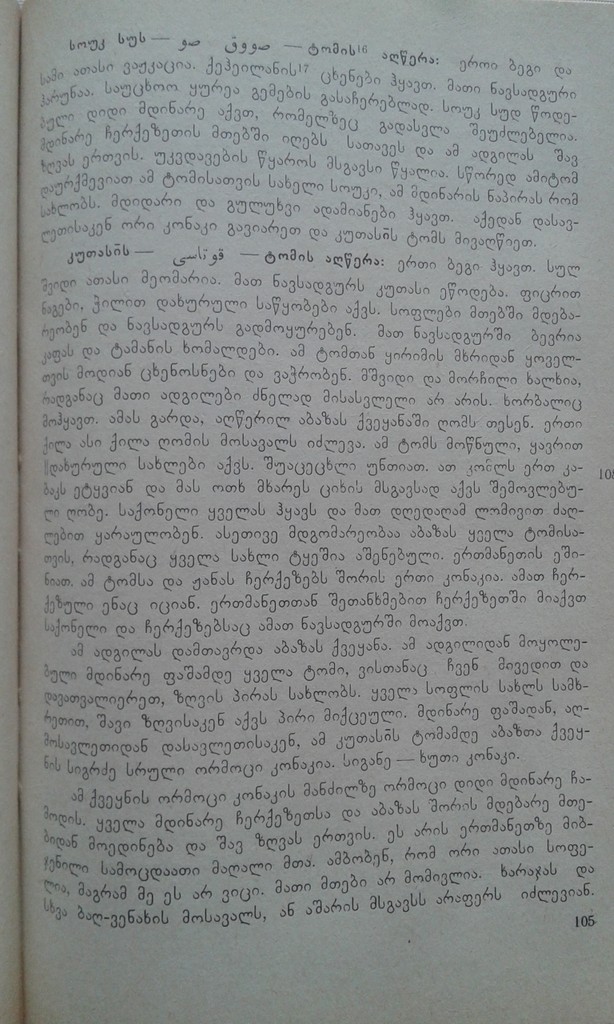 სოუკ სუს — صووق صو — ტომის16 აღწერა: ერთი ბეგი და
სამი ათასი ვაჟკაცია. ქეჰეილანის17 ცხენები ჰყავთ. მათი ნავსადგური
ჰარუნაა. საუცხოო ყურეა გემების გასაჩერებლად. სოუკ სუდ წოდე-
ბული დიდი მდინარე აქვთ, რომელზეც გადასვლა შეუძლებელია.
მდინარე ჩერქეზეთის მთებში იღებს სათავეს და ამ ადგილას შავ
ზღვას ერთვის. უკვდავების წყაროს მსგავსი წყალია. სწორედ ამიტომ
დაურქმევიათ ამ ტომისათვის სახელი სოუკი, ამ მდინარის ნაპირას რომ
სახლობს. მდიდარი და გულუხვი ადამიანები ჰყავთ. აქედან დასავ-
ლეთისაკენ ორი კონაკი გავიარეთ და კუთასის ტომს მივაღწიეთ.
კუთასის — قوتاسى — ტომის აღწერა: ერთი ბეგი ჰყავთ. სულ
შვიდი ათასი მეომარია. მათ ნავსადგურს კუთასი ეწოდება. ფიცრით
ნაგები, ჭილით დახურული საწყობები აქვს. სოფლები მთებში მდება-
რეობენ და ნავსადგურს გადმოყურებენ. მათ ნავსადგურში ბევრია
კაფას და ტამანის ხომალდები. ამ ტომთან ყირიმის მხრიდან ყოველ-
თვის მოდიან ცხენოსნები და ვაჭრობენ. მშვიდი და მორჩილი ხალხია,
რადგანაც მათი ადგილები ძნელად მისასვლელი არ არის. ხორბალიც
მოჰყავთ. ამას გარდა, აღწერილ აბაზას ქვეყანაში ღომს თესენ. ერთი
ქილა ასი ქილა ღომის მოსავალს იძლევა. ამ ტომს მოწნული, ყავრით
დახურული სახლები აქვს. შუაცეცხლი უნთიათ. ათ კომლს ერთ კა-
ბაკს ეტყვიან და მას ოთხ მხარეს ციხის მსგავსად აქვს შემოვლებუ-
ლი ღობე. საქონელი ყველას ჰყავს და მათ დღედაღამ ლომივით ძაღ-
ლებით ყარაულობენ. ასეთივე მდგომარეობაა აბაზას ყველა ტომისა-
თვის, რადგანაც ყველა სახლი ტყეშია აშენებული. ერთმანეთის ეში-
ნიათ. ამ ტომსა და ჟანას ჩერქეზებს შორის ერთი კონაკია. ამათ ჩერ-
ქეზული ენაც იციან. ერთმანეთთან შეთანხმებით ჩერქეზეთში მიაქვთ
საქონელი და ჩერქეზებსაც ამათ ნავსადგურში მოაქვთ.
ამ ადგილას დამთავრდა აბაზას ქვეყანა. ამ ადგილიდან მოყოლე-
ბული მდინარე ფაშამდე ყველა ტომი, ვისთანაც ჩვენ მივედით და
დავათვალიერეთ, ზღვის პირას სახლობს. ყველა სოფლის სახლს სამხ-
რეთით, შავი ზღვისაკენ აქვს პირი მიქცეული. მდინარე ფაშადან, აღ-
მოსავლეთიდან დასავლეთისაკენ, ამ კუთასის ტომამდე აბაზთა ქვეყ-
ნის სიგრძე სრული ორმოცი კონაკია. სიგანე — ხუთი კონაკი.
ამ ქვეყნის ორმოცი კონაკის მანძილზე ორმოცი დიდი მდინარე ჩა-
მოდის. ყველა მდინარე ჩერქეზეთსა და აბაზას შორის მდებარე მთე-
ბიდან მოედინება და შავ ზღვას ერთვის. ეს არის ერთმანეთზე მიბ-
ჯენილი სამოცდაათი მაღალი მთა. ამბობენ, რომ ორი ათასი სოფე-
ლია, მაგრამ მე ეს არ ვიცი. მათი მთები არ მომივლია. ხარაჯას და
სხვა ბაღ-ვენახის მოსავალს, ან აშარის მსგავსს არაფერს იძლევიან.
105